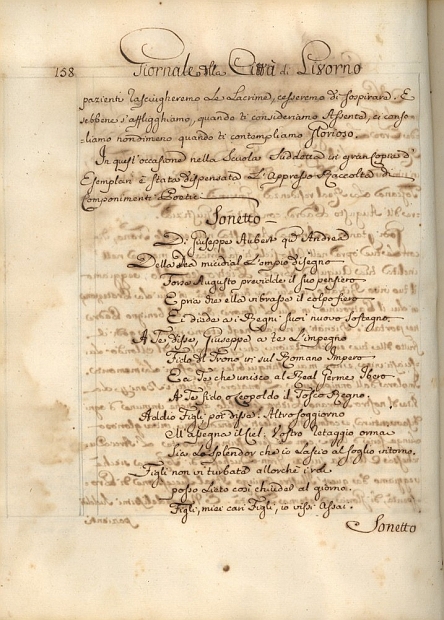 158 Giornale della Città di Livorno
pazienti rasciugheremo le Lacrime, cesseremo di sospirare. E
sebbene s'affligghiamo, quando ti consideriamo Assente, ci conso-
liamo nondimeno quando ti contempliamo glorioso.
In quest'occasione nella Scuola Suddetta in gran Copia d'
Esemplari è stata dispensata L'Appresso Raccolta di
Componimenti Poetici
Sonetto
Di Giuseppe Aubert qm Andrea
Della Dea micidial l'empio disegno
Forse Augusto previdde il suo pensiero
E pria che ella vibrasse il colpo fiero
Ei diede ai Regni suoi nuovo sostegno
A Te disse, Giuseppe a te l'impegno
Fido di Trono in sul Romano Impero
E a Te che unisco al Real Germe Ibero
A Te fido o Leopoldo il Tosco Regno.
Addio Figli poi disse: Altro soggiorno
M'assegna il Ciel. Vostra etaggio orma
Sia lo splendor che io lascio al soglio intorno.
Figli non vi turbate allorchè i rai
posso lieto così chiuder al giorno.
Figli, miei cari Figli, io vissi Assai.
Sonetto